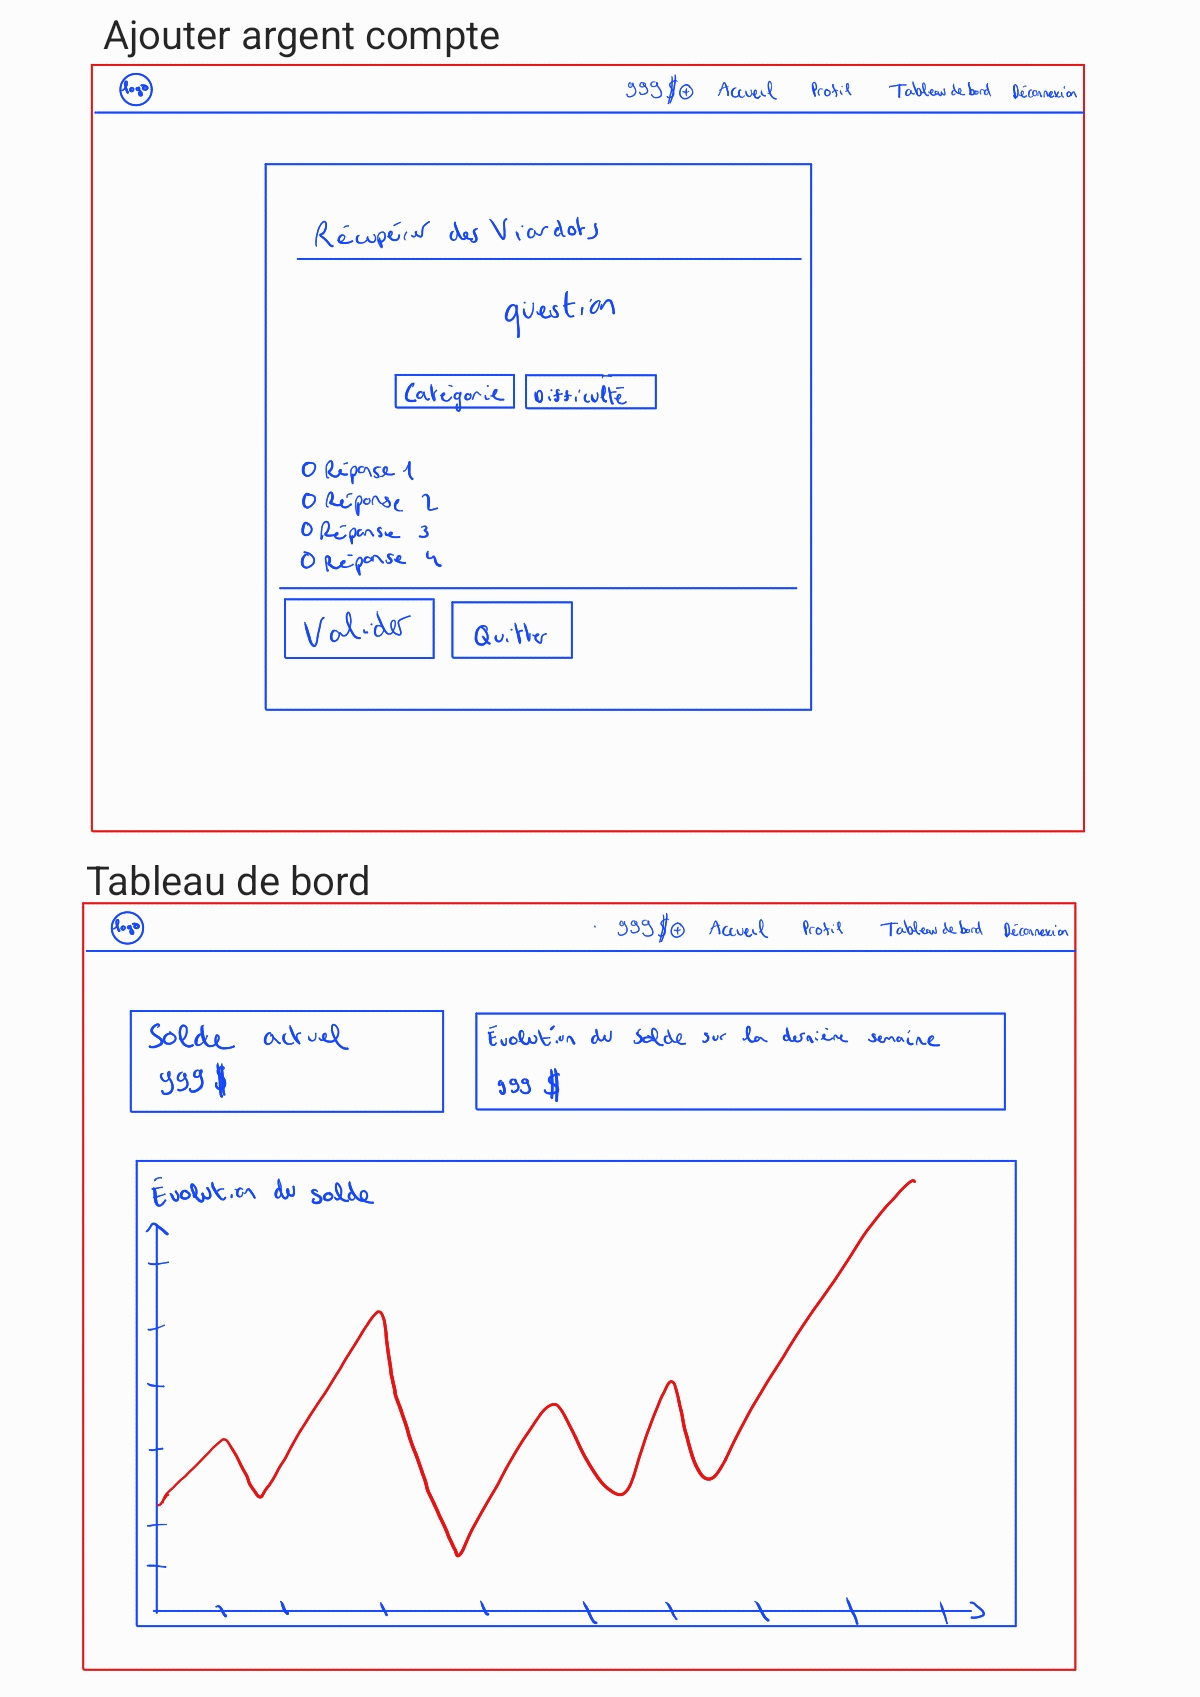 Ajouter argent compte
logo 999 $ + Accueil Profil Tableau de bord Déconnexion
Récupérer des Viardots
question
Catégorie Difficulté
O Réponse 1
O Réponse 2
O Réponse 3
O Réponse 4
Valider Quitter
Tableau de bord
logo 999 $ + Accueil Profil Tableau de bord Déconnexion
Solde actuel
999 $
Évolution du solde sur la dernière semaine
999 $
Évolution du solde